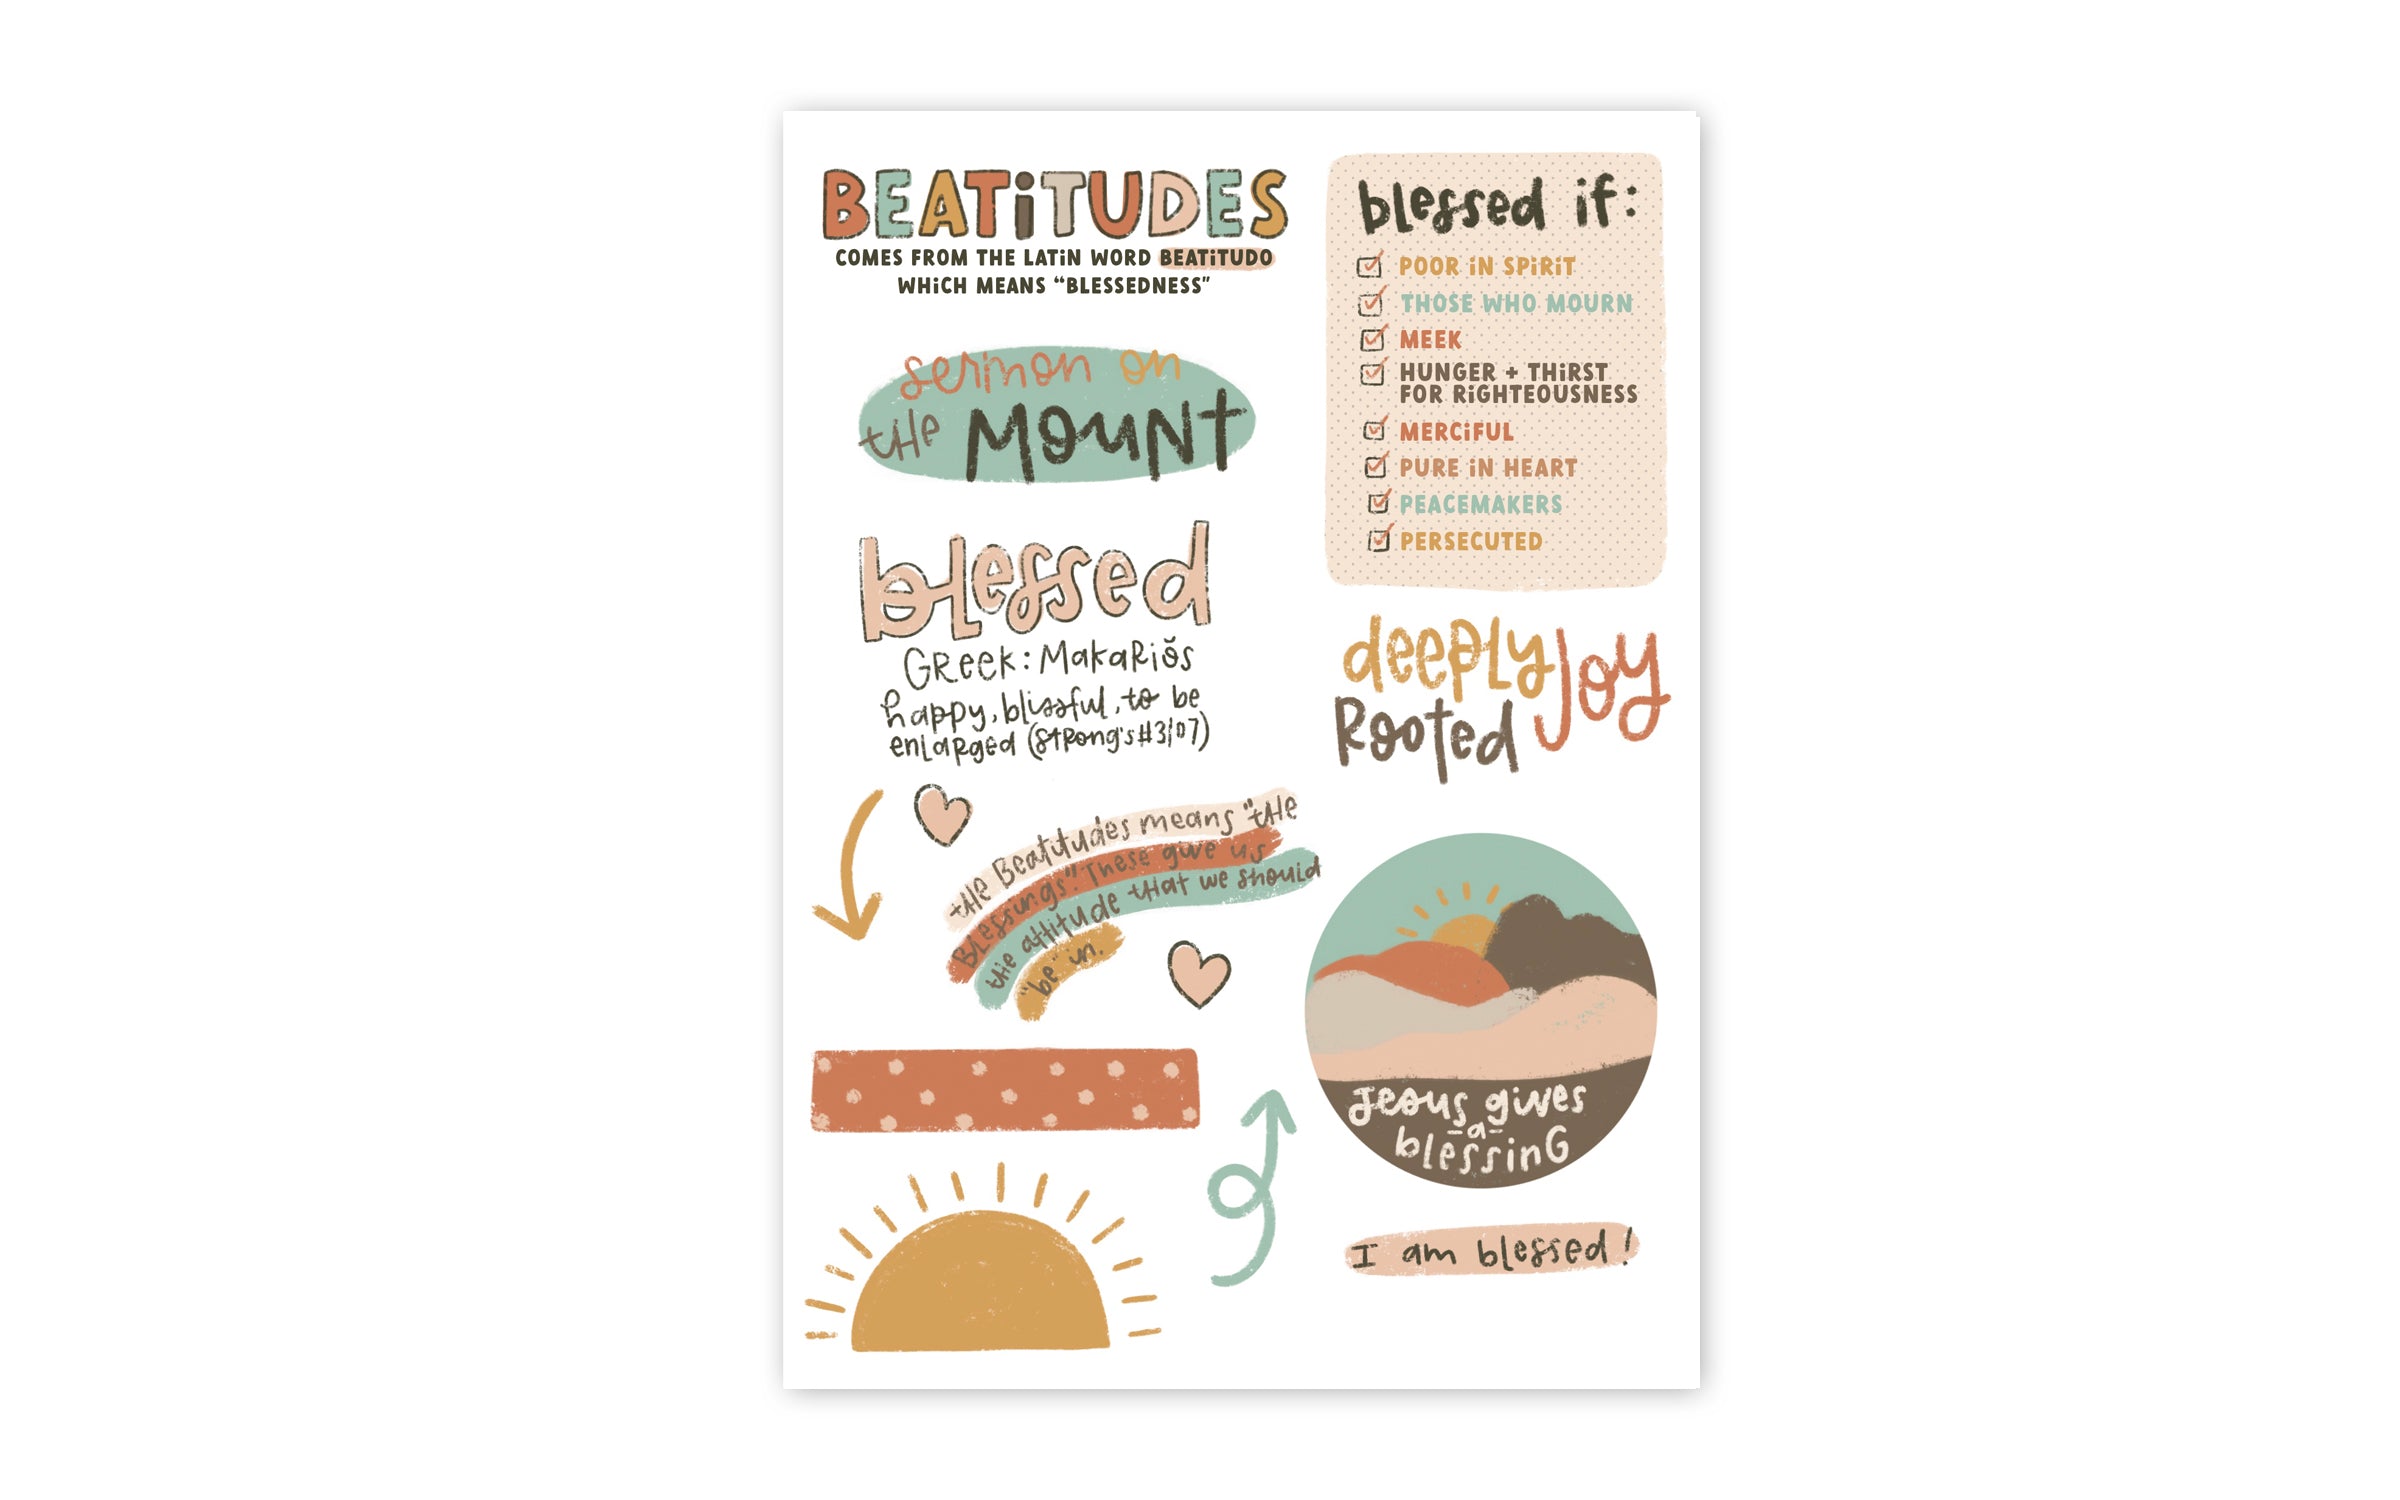 BEATiTUDES
COMES FROM THE LATiN WORD BEATiTUDO
WHiCH MEANS “BLESSEDNESS”
sermon on
the MOUNT
blessed
GReek: Makariŏs
happy, blissful, to be
enlarged (Strong's #3107)
the Beatitudes means "the
Blessings". These give us
the attitude that we should
"be" in.
blessed if:
POOR iN SPiRiT
THOSE WHO MOURN
MEEK
HUNGER + THiRST
FOR RiGHTEOUSNESS
MERCiFUL
PURE iN HEART
PEACEMAKERS
PERSECUTED
deeply
Rooted
Joy
Jesus gives
-a-
blessinG
I am blessed!